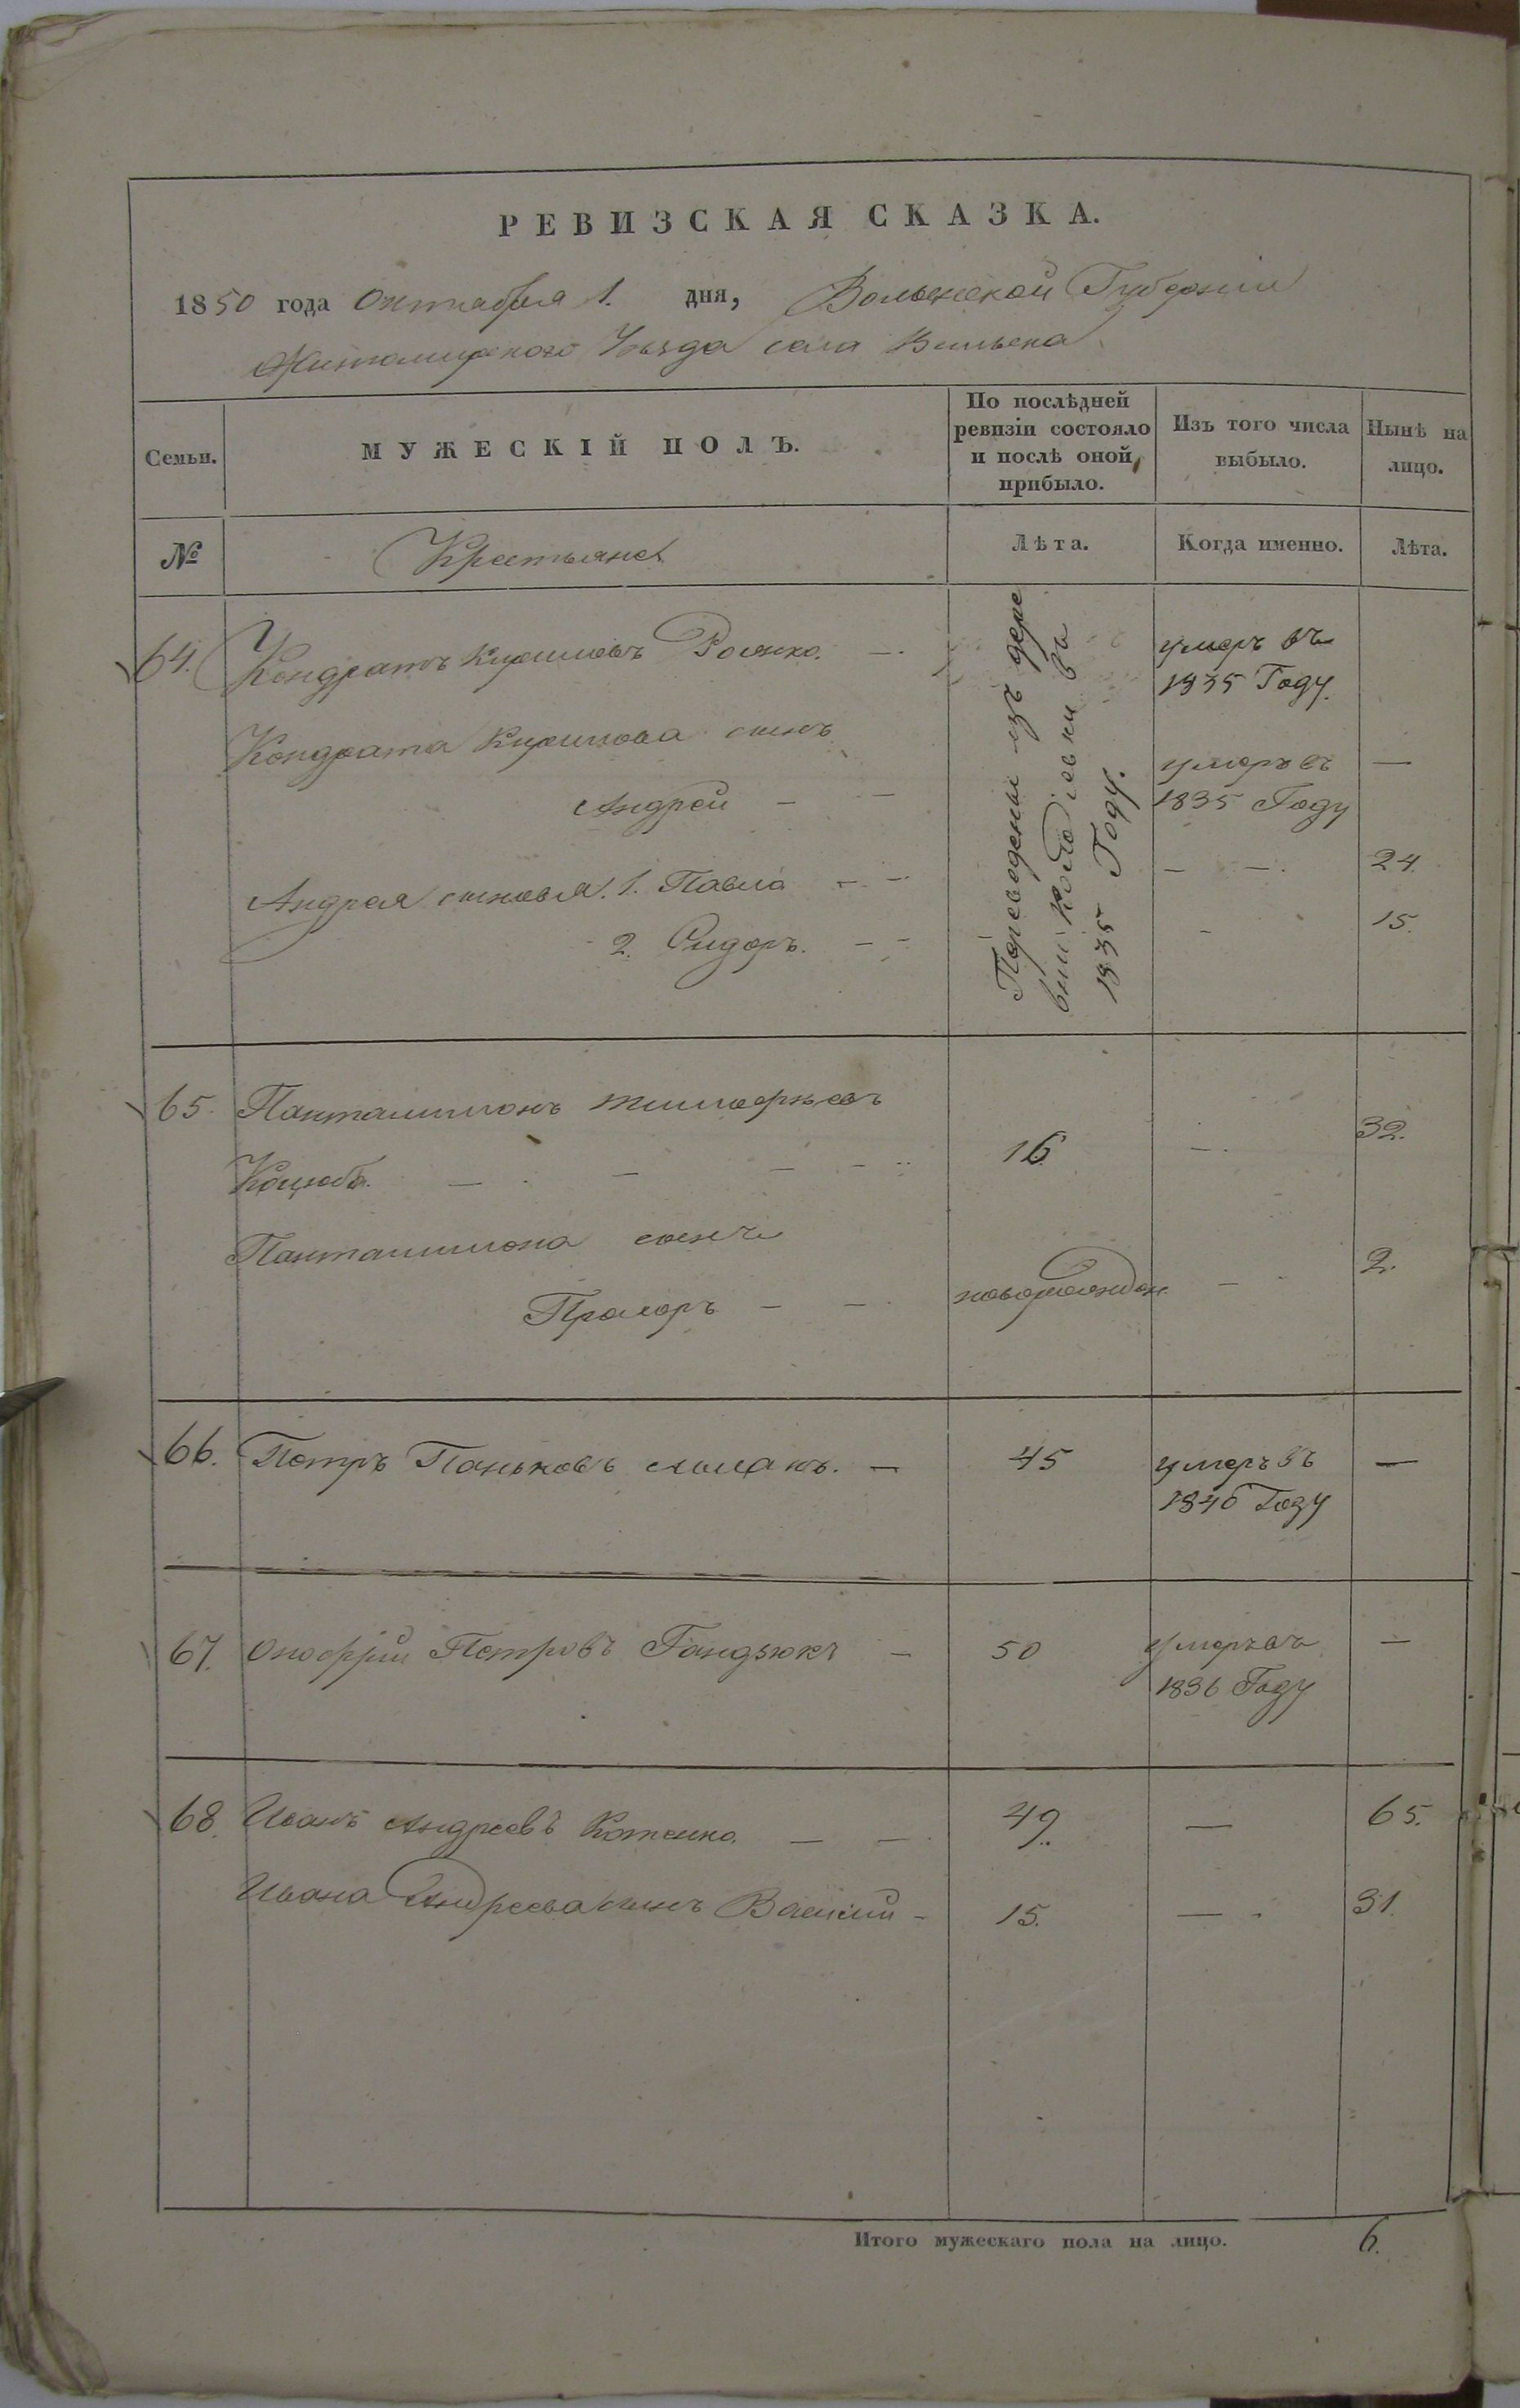 РЕВИЗСКАЯ СКАЗКА.
1850 года Октября 1. дня, Волынской Губернии
Житомирского Уѣзда села Вильска
Семьи.
МУЖЕСКІЙ ПОЛЪ.
По послѣдней ревизіи состояло и послѣ оной прибыло.
Изъ того числа выбыло.
Нынѣ на лицо.
№
Крестьяне
Лѣта.
Когда именно.
Лѣта.
64. Кондратъ Кириловъ — умеръ въ
1835 Году.
Переведены изъ дере
вни в
1835 Году.
Кондрата Кирилова сынъ
Андрей — — умеръ въ —
1835 Году
Андрея сыновья. 1. Павло — — — —. 24.
2. Сидоръ. — — - 15.
65. Пантелимонъ Тимофѣевъ
Коцюба. — — — 16 —. 32.
Пантелимона сынъ
Прохоръ — — новорожден. — 2.
66. Петръ Паньковъ — 45 умеръ въ —
1840 Году
67. Онофрій Петровъ Гандзюкъ — 50 умеръ въ —
1836 Году
68. Иванъ Андреевъ Котенко. — — 49. — 65.
Ивана Андреева сынъ Василий - 15. — - 31.
Итого мужескаго пола на лицо. 6.